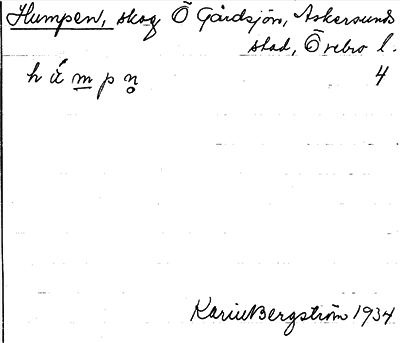 Humpen, skog Ö Gårdsjön, Askersunds
stad, Örebro l.
h ú m̲ p n̥ 4
Karin Bergström 1934